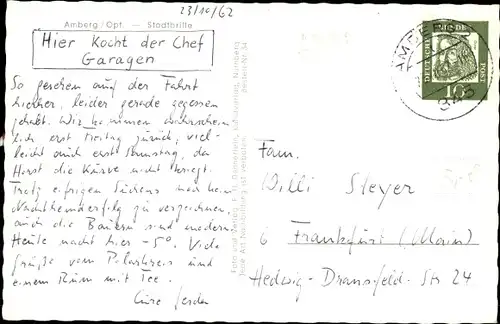 23/10/62
Amberg/Opf. — Stadtbrille
Hier Kocht der Chef
Garagen
So gesehen auf der Fahrt
hierher, leider gerade gegessen
gehabt. Wir kommen wahrschein
lich erst Freitag zurück, viel-
leicht auch erst Samstag, da
Horst die Kurve nicht kriegt.
Trotz eifrigen Suchens war kein
Nachthemderfolg zu verzeichnen,
auch die Bauern sind modern
Heute nacht hier -5°. Viele
Grüße vom Polarkreis und
einem Rum mit Tee.
Eure Gerda
Foto und Verlag
Nürnberg
Bestell-Nr. 34
AMBERG
DEUTSCHE BUNDESPOST
10
Fam.
Willi Steyer
6 Frankfurt (Main)
Hedwig-Dransfeld-Str 24